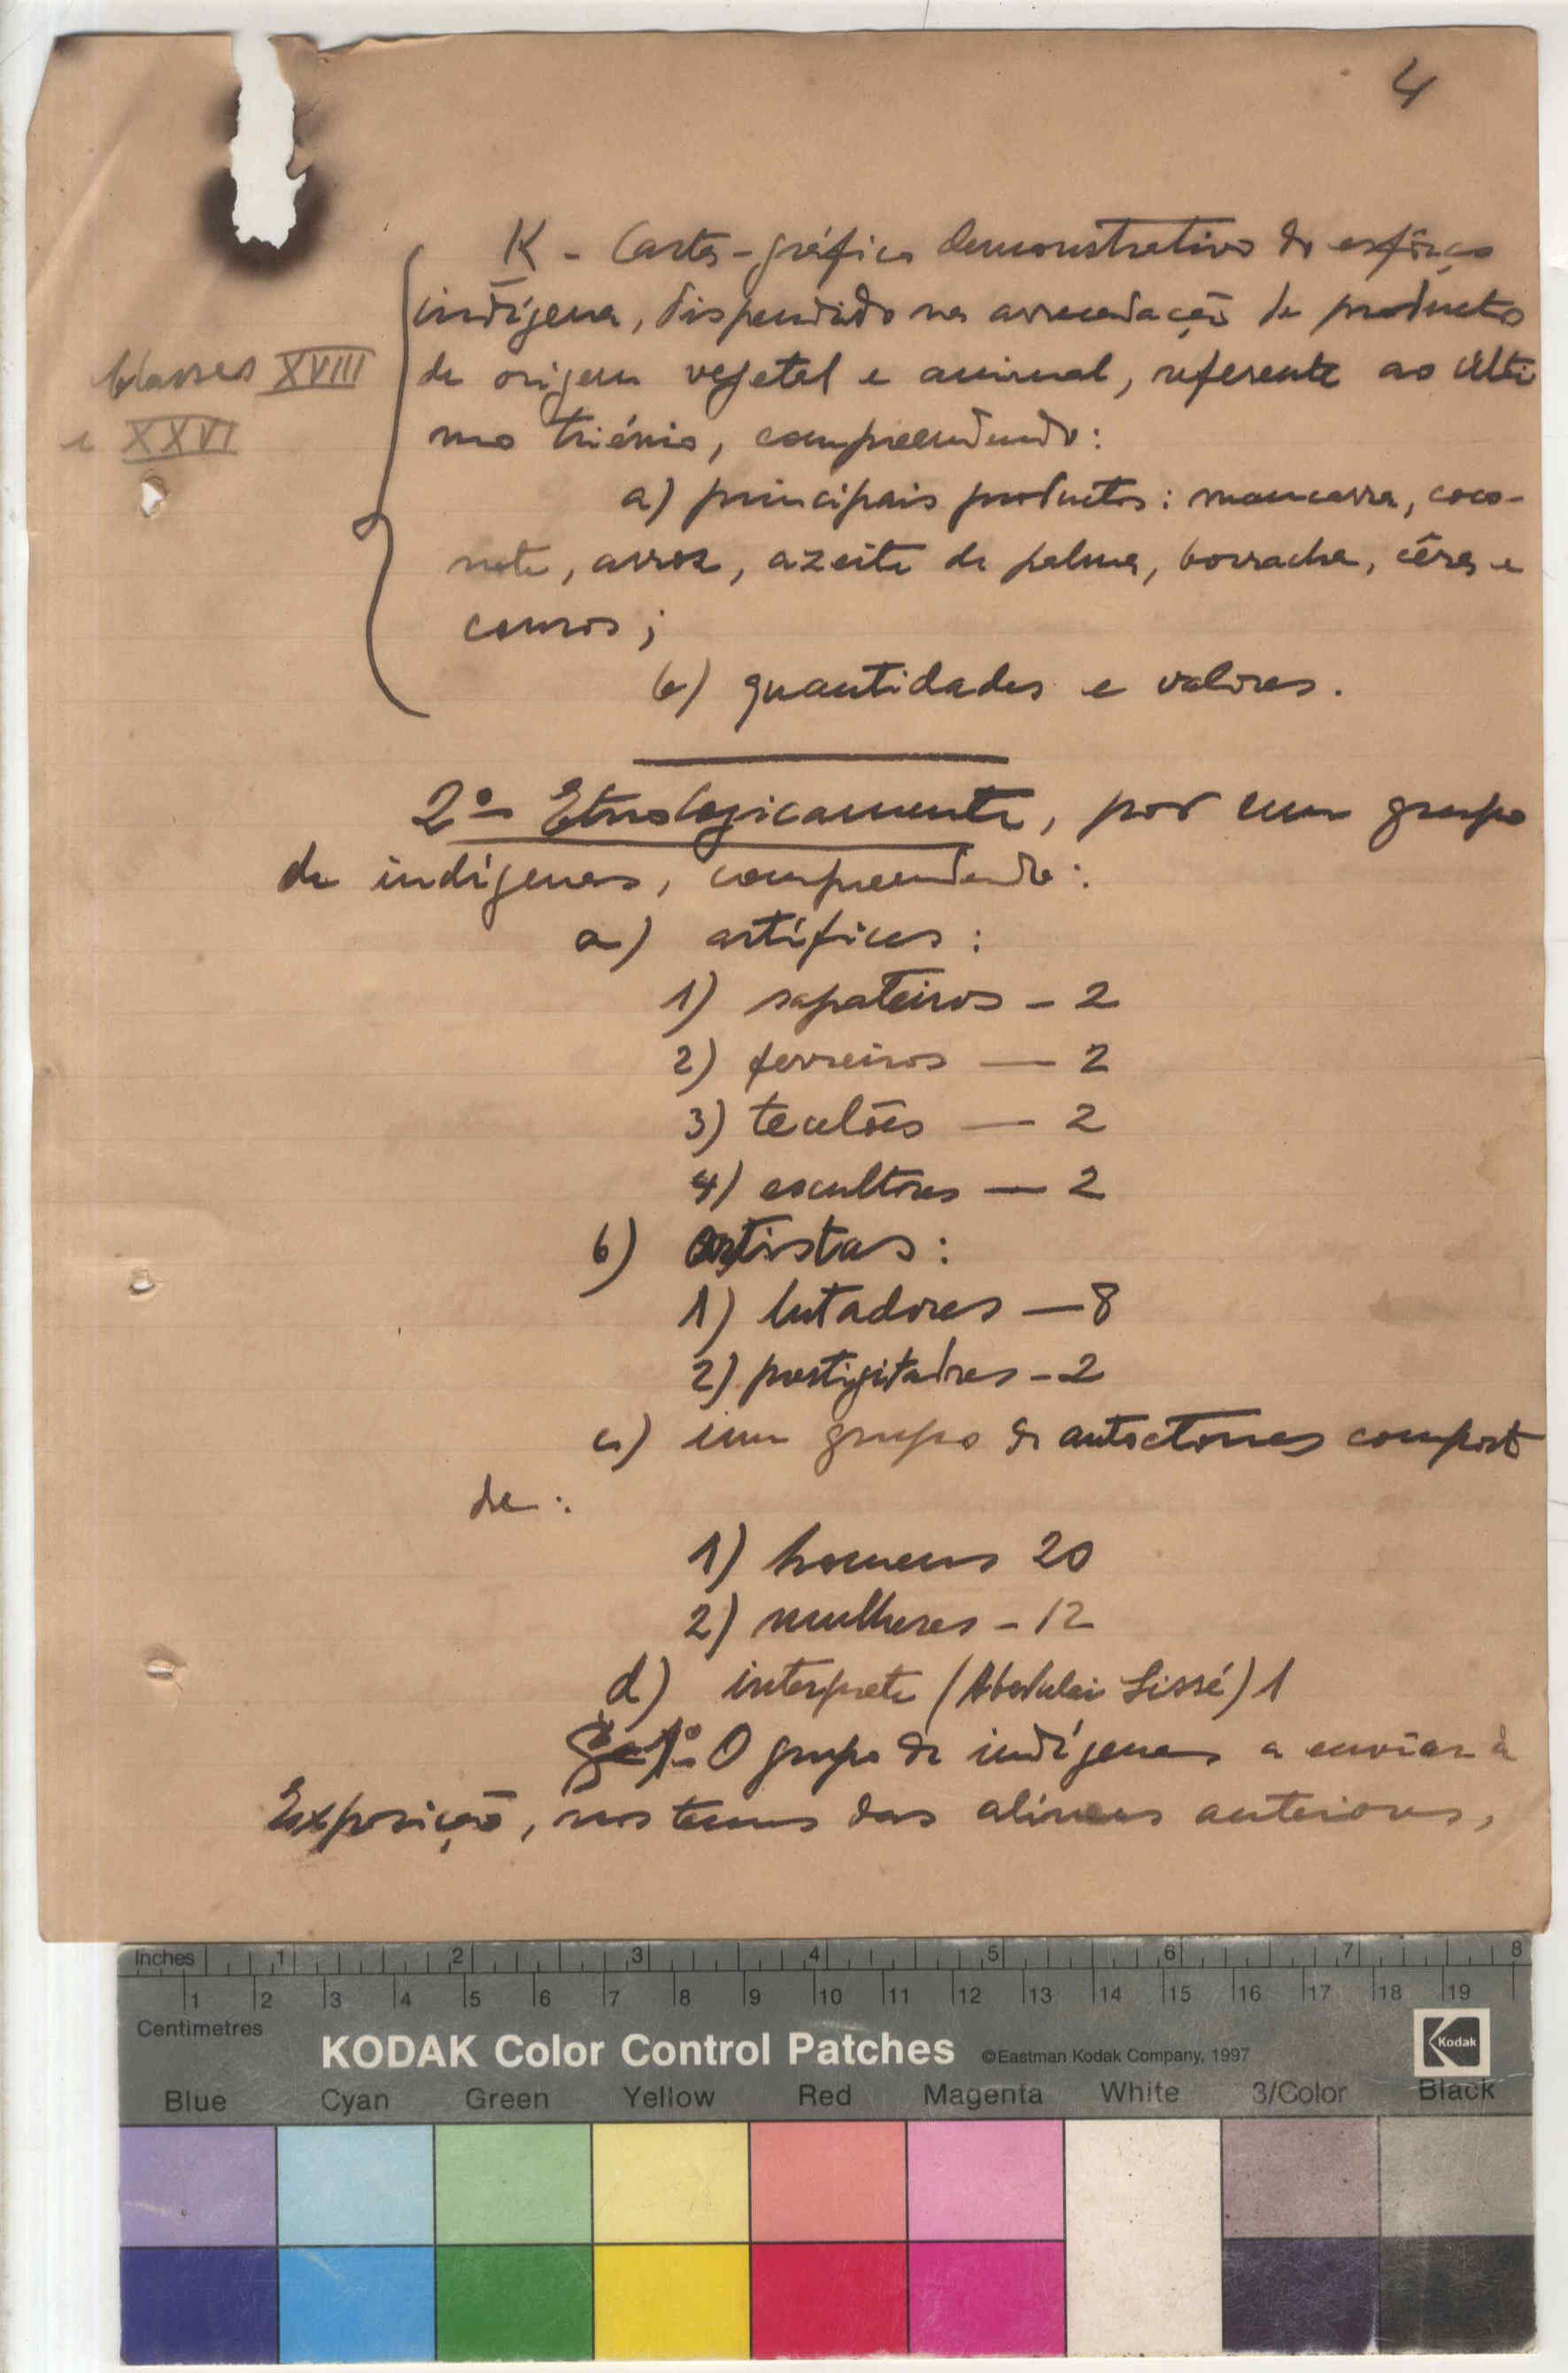 4
K - Carta-gráfico demonstrativo do esfôrço
indígena, dispendido na arrecadação de productos
classes XVIII
de origem vegetal e animal, referente ao últi
e XXVI
mo triénio, compreendendo:
a) principais productos: mancarra, coco-
note, arroz, azeite de palma, borracha, cêra e
couros;
b) quantidades e valores.
2º Etnologicamente, por um grupo
de indígenas, compreendendo:
a) artífices:
1) sapateiros - 2
2) ferreiros — 2
3) tecelões — 2
4) escultores — 2
b) artistas:
1) lutadores — 8
2) prestigitadores - 2
c) um grupo de autoctones composto
de:
1) homens 20
2) mulheres - 12
d) interprete (Abdulai Sissé) 1
O grupo de indígenas a enviar à
Exposição, nos termos das alineas anteriores,
Inches 1 2 3 4 5 6 7 8
1 2 3 4 5 6 7 8 9 10 11 12 13 14 15 16 17 18 19
Centimetres
KODAK Color Control Patches ©Eastman Kodak Company, 1997 Kodak
Blue Cyan Green Yellow Red Magenta White 3/Color Black